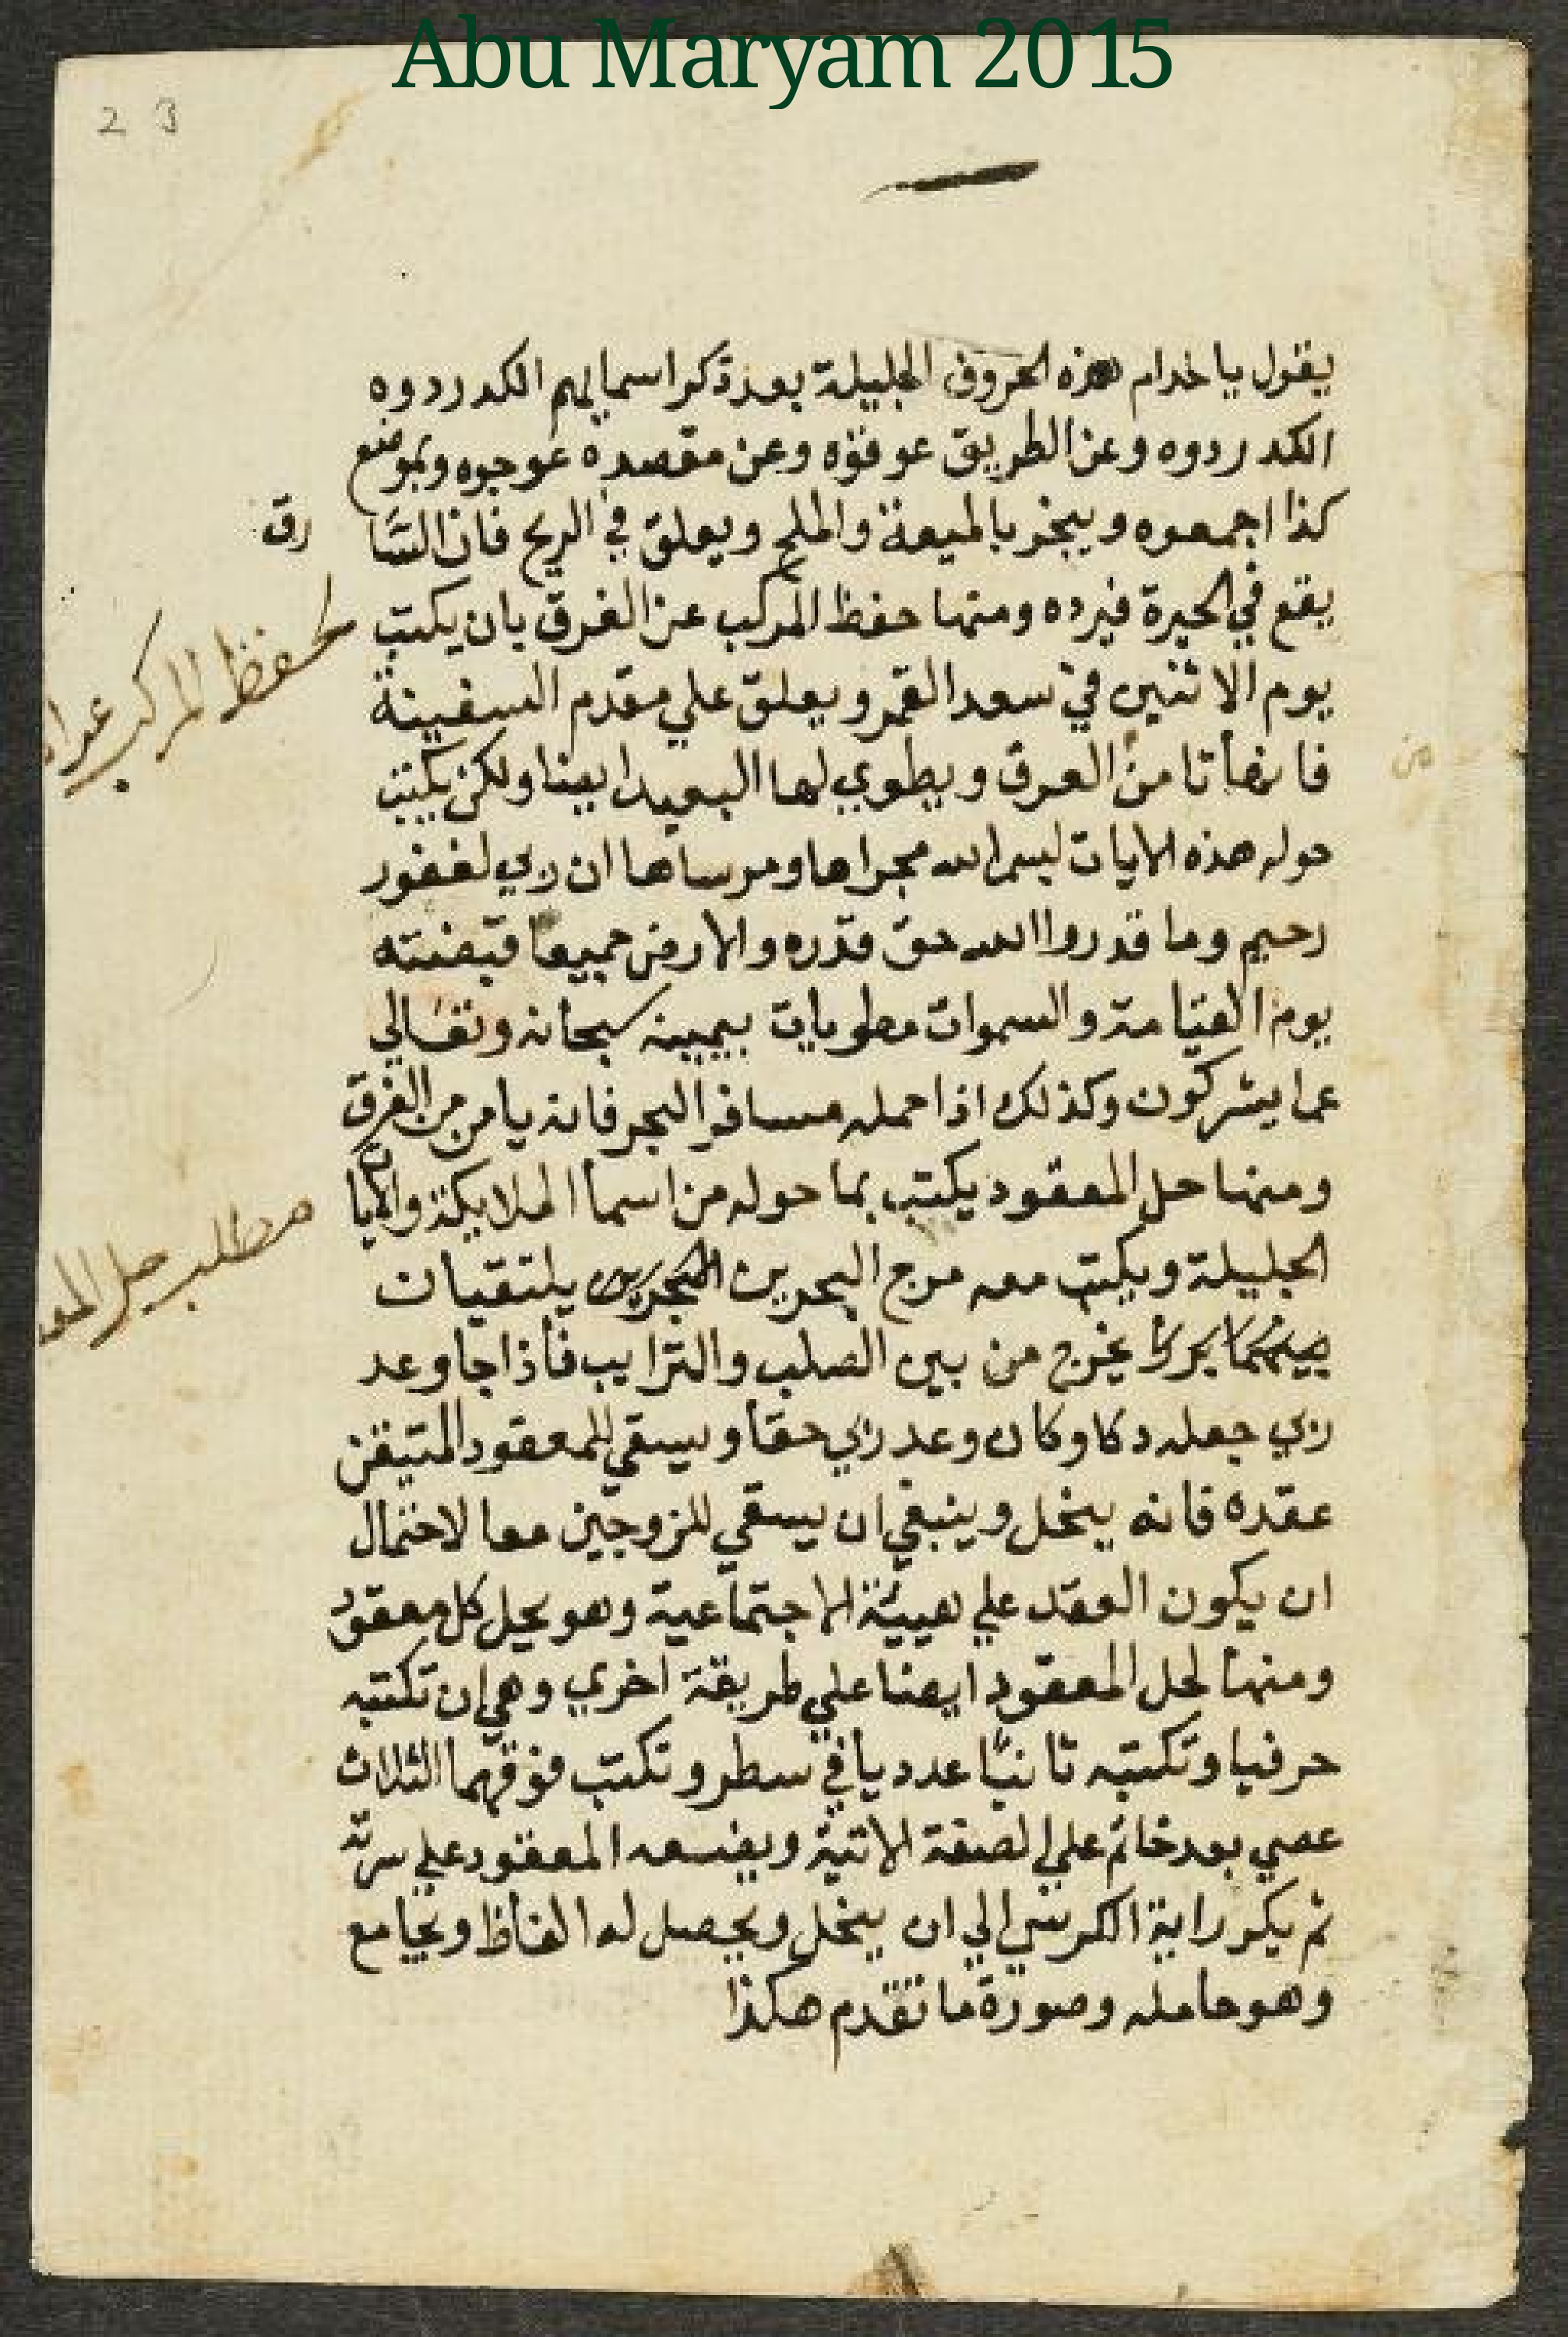 Abu Maryam 2015
23
يقول يا خدام هذه الحروف الجليلة بعد ذكر اسمايهم الكد ردوه
الكد ردوه وعن الطريق عوقوه وعن مقصده عوجوه وبموضع
كذا اجمعوه ويبخر بالميعة والملح ويعلق في الريح فان السا
رق
يقع في الحيرة فيرده ومنها حفظ المركب عن الغرق بان يكتب
لحفظ المركب
يوم الاثنين في سعد القمر ويعلق علي مقدم السفينة
فانها تامن الغرق ويطوي لها البعيد ايضا ولكن يكتب
حوله هذه الايات بسم الله مجراها ومرساها ان ربي لغفور
رحيم وما قدروا الله حق قدره والارض جميعا قبضته
يوم القيامة والسموات مطويات بيمينه سبحانه وتعالي
عما يشركون وكذلك اذا حمله مسافر البحر فانه يامن من الغرق
ومنها حل المعقود يكتب بما حوله من اسما الملايكة والايات
مطلب حل المعو
الجليلة ويكتب معه مرج البحرين يلتقيان
بينهما برزخ يخرج من بين الصلب والترايب فاذا جا وعد
ربي جعله دكا وكان وعد ربي حقا ويسقي للمعقود المتيقن
عقده فانه ينحل وينبغي ان يسقي للزوجين معا لاحتمال
ان يكون العقد علي هيئة الاجتماعية وهو يحل كل معقود
ومنها لحل المعقود ايضا علي طريقة اخري وهي ان تكتبه
حرفيا وتكتبه ثانيا عدديا في سطر وتكتب فوقهما الثلاث
عصي بعد خاتم علي الصفة الاتية ويضعه المعقود علي سرته
ثم يكرر اية الكرسي الي ان ينحل ويحصل له ويجامع
وهو حامله وصورة ما تقدم هكذا